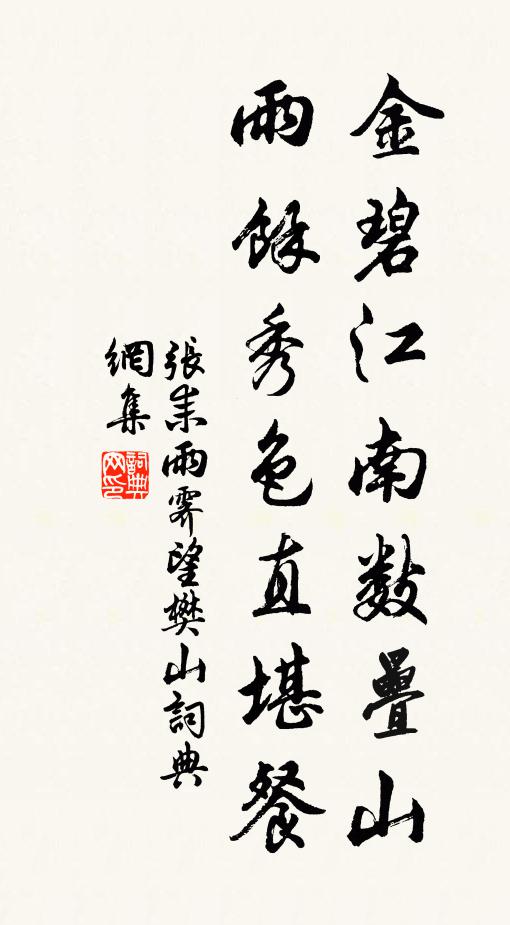 金碧江南數疊山
雨餘秀色直堪餐
張耒雨霽望樊山詞典
網集
詞典
网印